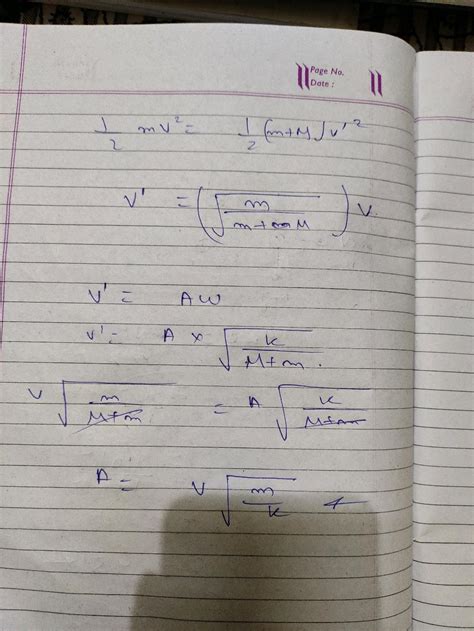 Page No.
Date :
1/2 mv² = 1/2 (m+M) v'²
v' = (√(m/(m+M))) v
v' = Aw
v' = A × √(k/(M+m)).
v √(m/(M+m)) = A √(k/(M+m))
A = v √(m/k)